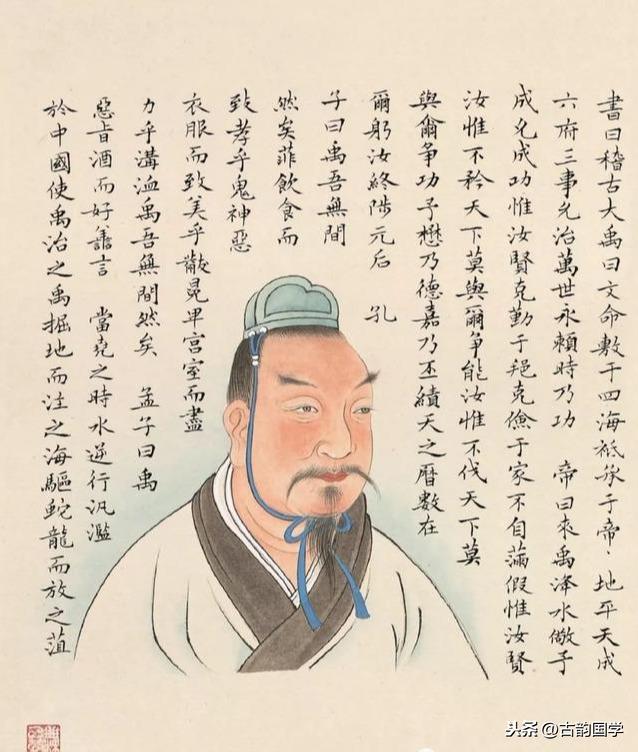 書曰稽古大禹曰文命敷于四海祗承于帝、地平天成
六府三事允治萬世永賴時乃功 帝曰來禹洚水儆予
成允成功惟汝賢克勤于邦克儉于家不自滿假惟汝賢
汝惟不矜天下莫與爾爭能汝惟不伐天下莫
與爾爭功予懋乃德嘉乃丕績天之曆數在
爾躬汝終陟元后 孔
子曰禹吾無間
然矣菲飲食而
致孝乎鬼神惡
衣服而致美乎黻冕卑宮室而盡
力乎溝洫禹吾無間然矣 孟子曰禹
惡旨酒而好譱言 當堯之時水逆行汎濫
於中國使禹治之禹掘地而注之海驅蛇龍而放之菹
头条@古韵国学